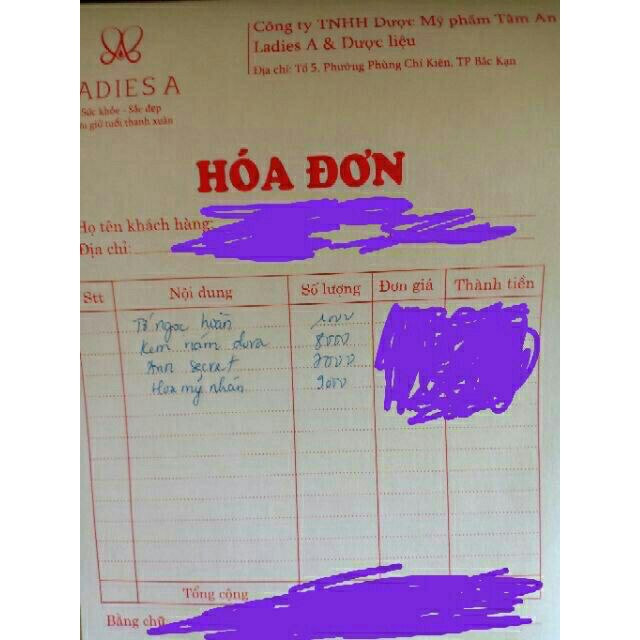 Công ty TNHH Dược Mỹ phẩm Tâm An
Ladies A & Dược liệu
Địa chỉ: Tổ 5, Phường Phùng Chí Kiên, TP Bắc Kạn
ADIES A
Sức khỏe - Sắc đẹp
giữ tuổi thanh xuân
HÓA ĐƠN
Họ tên khách hàng:
Địa chỉ:
Stt Nội dung Số lượng Đơn giá Thành tiền
Tố ngọc hoàn 1000
Kem nám dưa 8000
secret 2000
Hoa mỹ nhân 2000
Tổng cộng
Bằng chữ